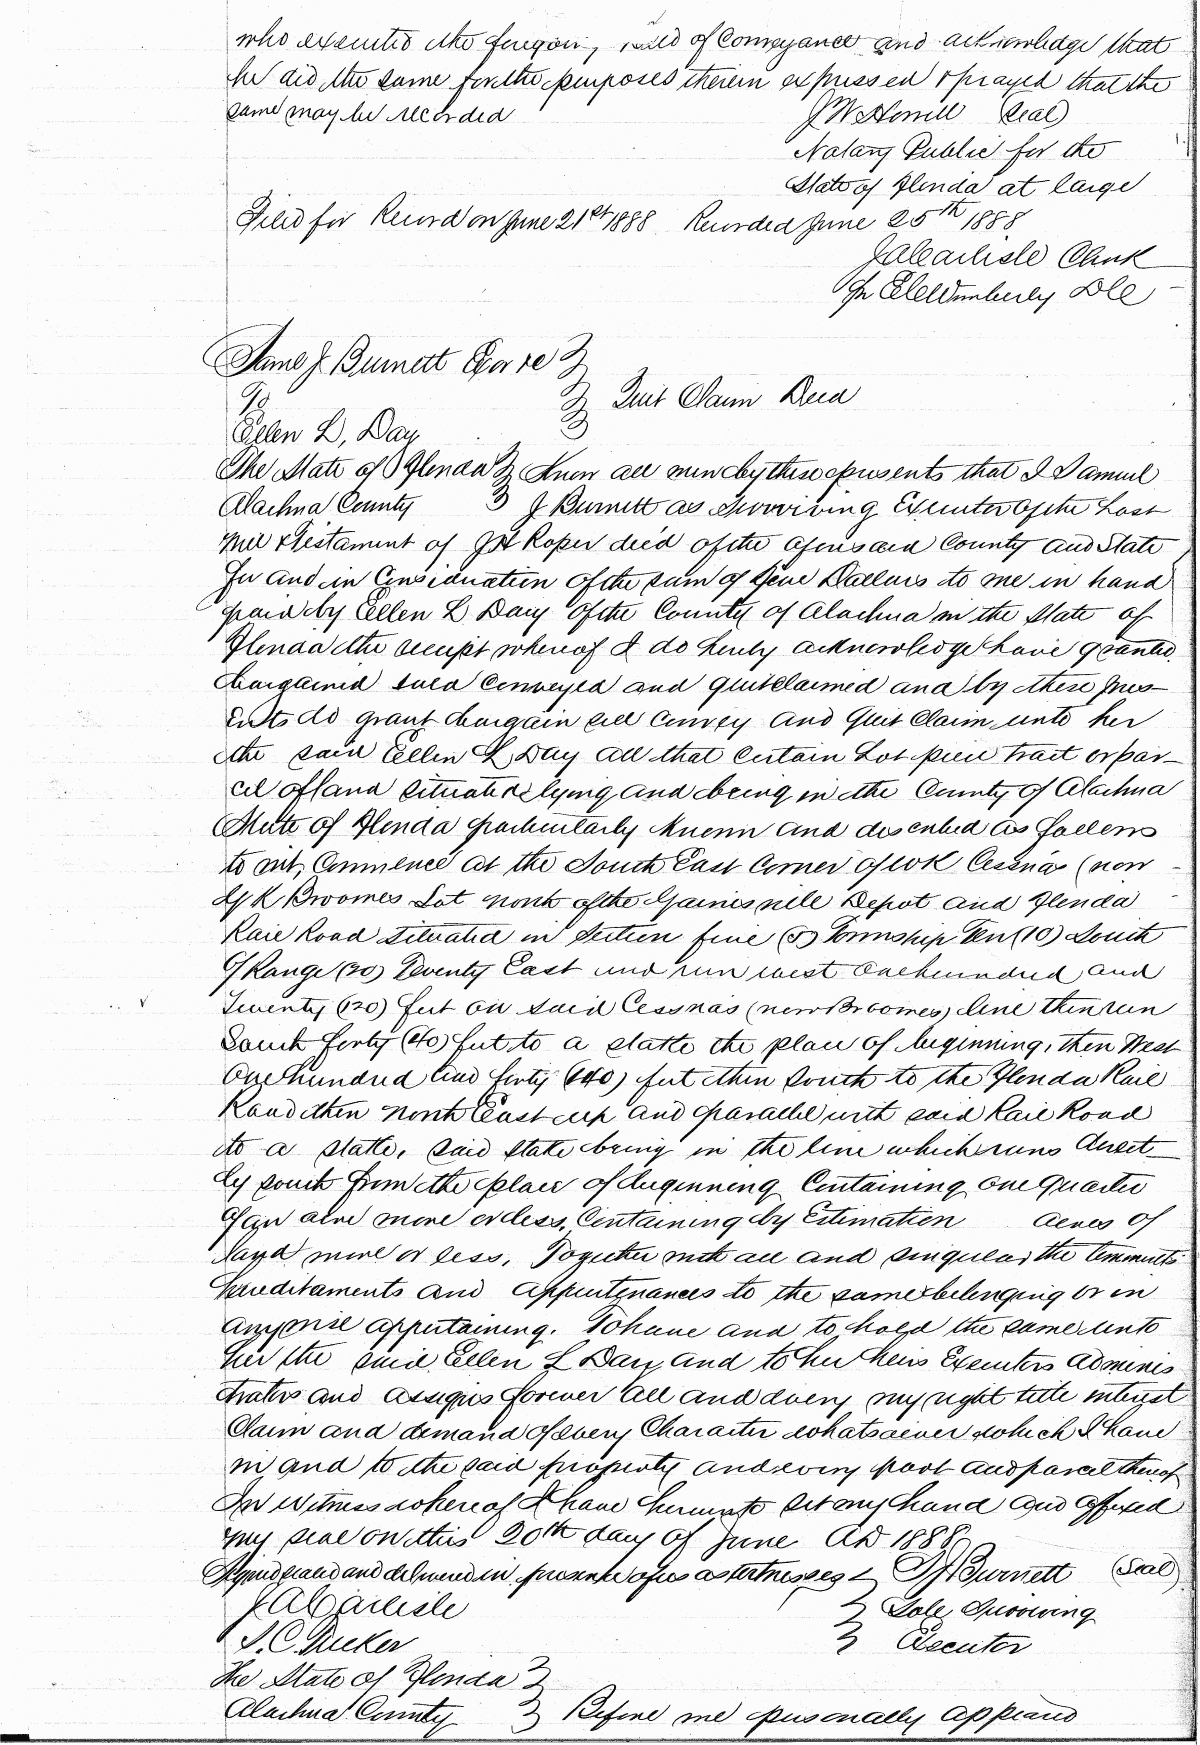 who executed the foregoing deed of Conveyance and acknowledge that
he did the same for the purposes therein expressed & prayed that the
same may be recorded J W Howill (Seal)
Notary Public for the
State of Florida at large
Filed for Record on June 21st 1888 Recorded June 25th 1888
J A Carlisle Clerk
Pr Wimberly D C
Saml J. Burnett Exor
To Quit Claim Deed
Ellen L, Day
The State of Florida Know all men by these presents that I Samuel
Alachua County J Burnett as Surviving Executor of the Last
Will & Testament of Roper dec'd of the aforesaid County and State
For and in Consideration of the sum of five Dollars to me in hand
paid by Ellen L Day of the County of Alachua in the State of
Florida the receipt whereof I do hereby acknowledge have granted
bargained sold conveyed and quitclaimed and by these pres-
ents do grant bargain sell convey and Quit Claim unto her
the said Ellen L Day all that certain Lot piece tract or par-
cel of land situated lying and being in the County of Alachua
State of Florida particularly known and described as follows
to wit, Commence at the South East Corner of W K Cessna's (now
K Broomes Lot north of the Gainesville Depot and Florida
Rail Road situated in Section five (5) Township Ten (10) South
of Range (20) Twenty East and run west one hundred and
Twenty (120) feet on said Cessnas (now Broomes) line then run
South forty (40) feet to a stake the place of beginning, then West
One hundred and forty (140) feet then South to the Florida Rail
Road then North East up and parallel with said Rail Road
to a stake, said stake being in the line which runs direct-
ly south from the place of beginning Containing one quarter
of an acre more or less, Containing by Estimation acres of
land more or less, Together with all and singular the tenements
hereditaments and appurtenances to the same belonging or in
anywise appertaining. To have and to hold the same unto
her the said Ellen L Day and to her heirs Executors Adminis
trators and assigns forever all and every my right title interest
Claim and demand of every Character whatsoever which I have
in and to the said property and every part and parcel thereof
In Witness whereof I have hereunto set my hand and affixed
my seal on this 20th day of June AD 1888
Signed sealed and delivered in presence of us as witnesses S J Burnett (Seal)
J A Carlisle Sole Surviving
S. C. Tucker Executor
The State of Florida
Alachua County Before me personally appeared